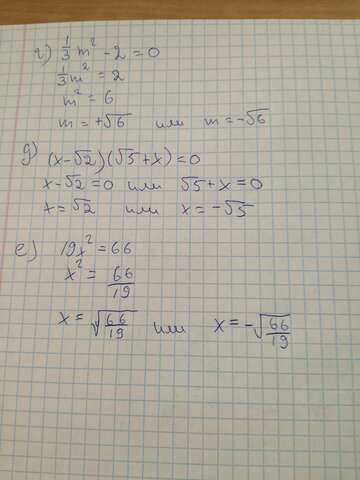 г) 1/3 m² - 2 = 0
1/3 m² = 2
m² = 6
m = +√6 или m = -√6
д) (x-√2)(√5+x)=0
x-√2=0 или √5+x=0
x=√2 или x=-√5
е) 19x²=66
x² = 66/19
x = √66/19 или x = -√66/19